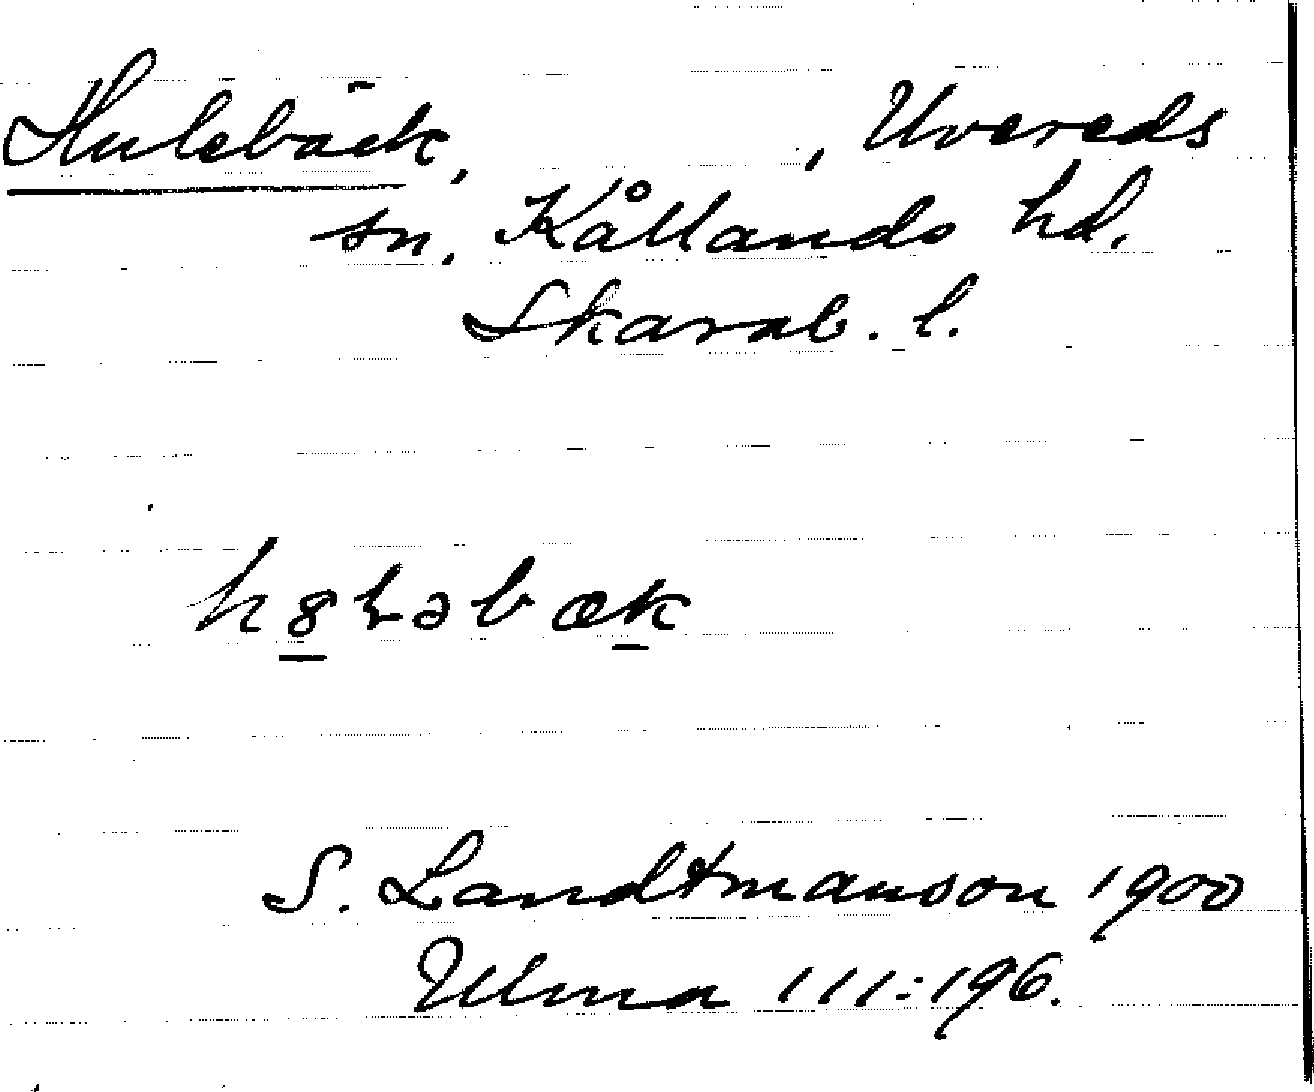 Hulebäck, , Uvereds
sn, Kållands hd.
Skarab. l.
h8ɬəbæk
S. Landtmanson 1900
Ulma 111:196.